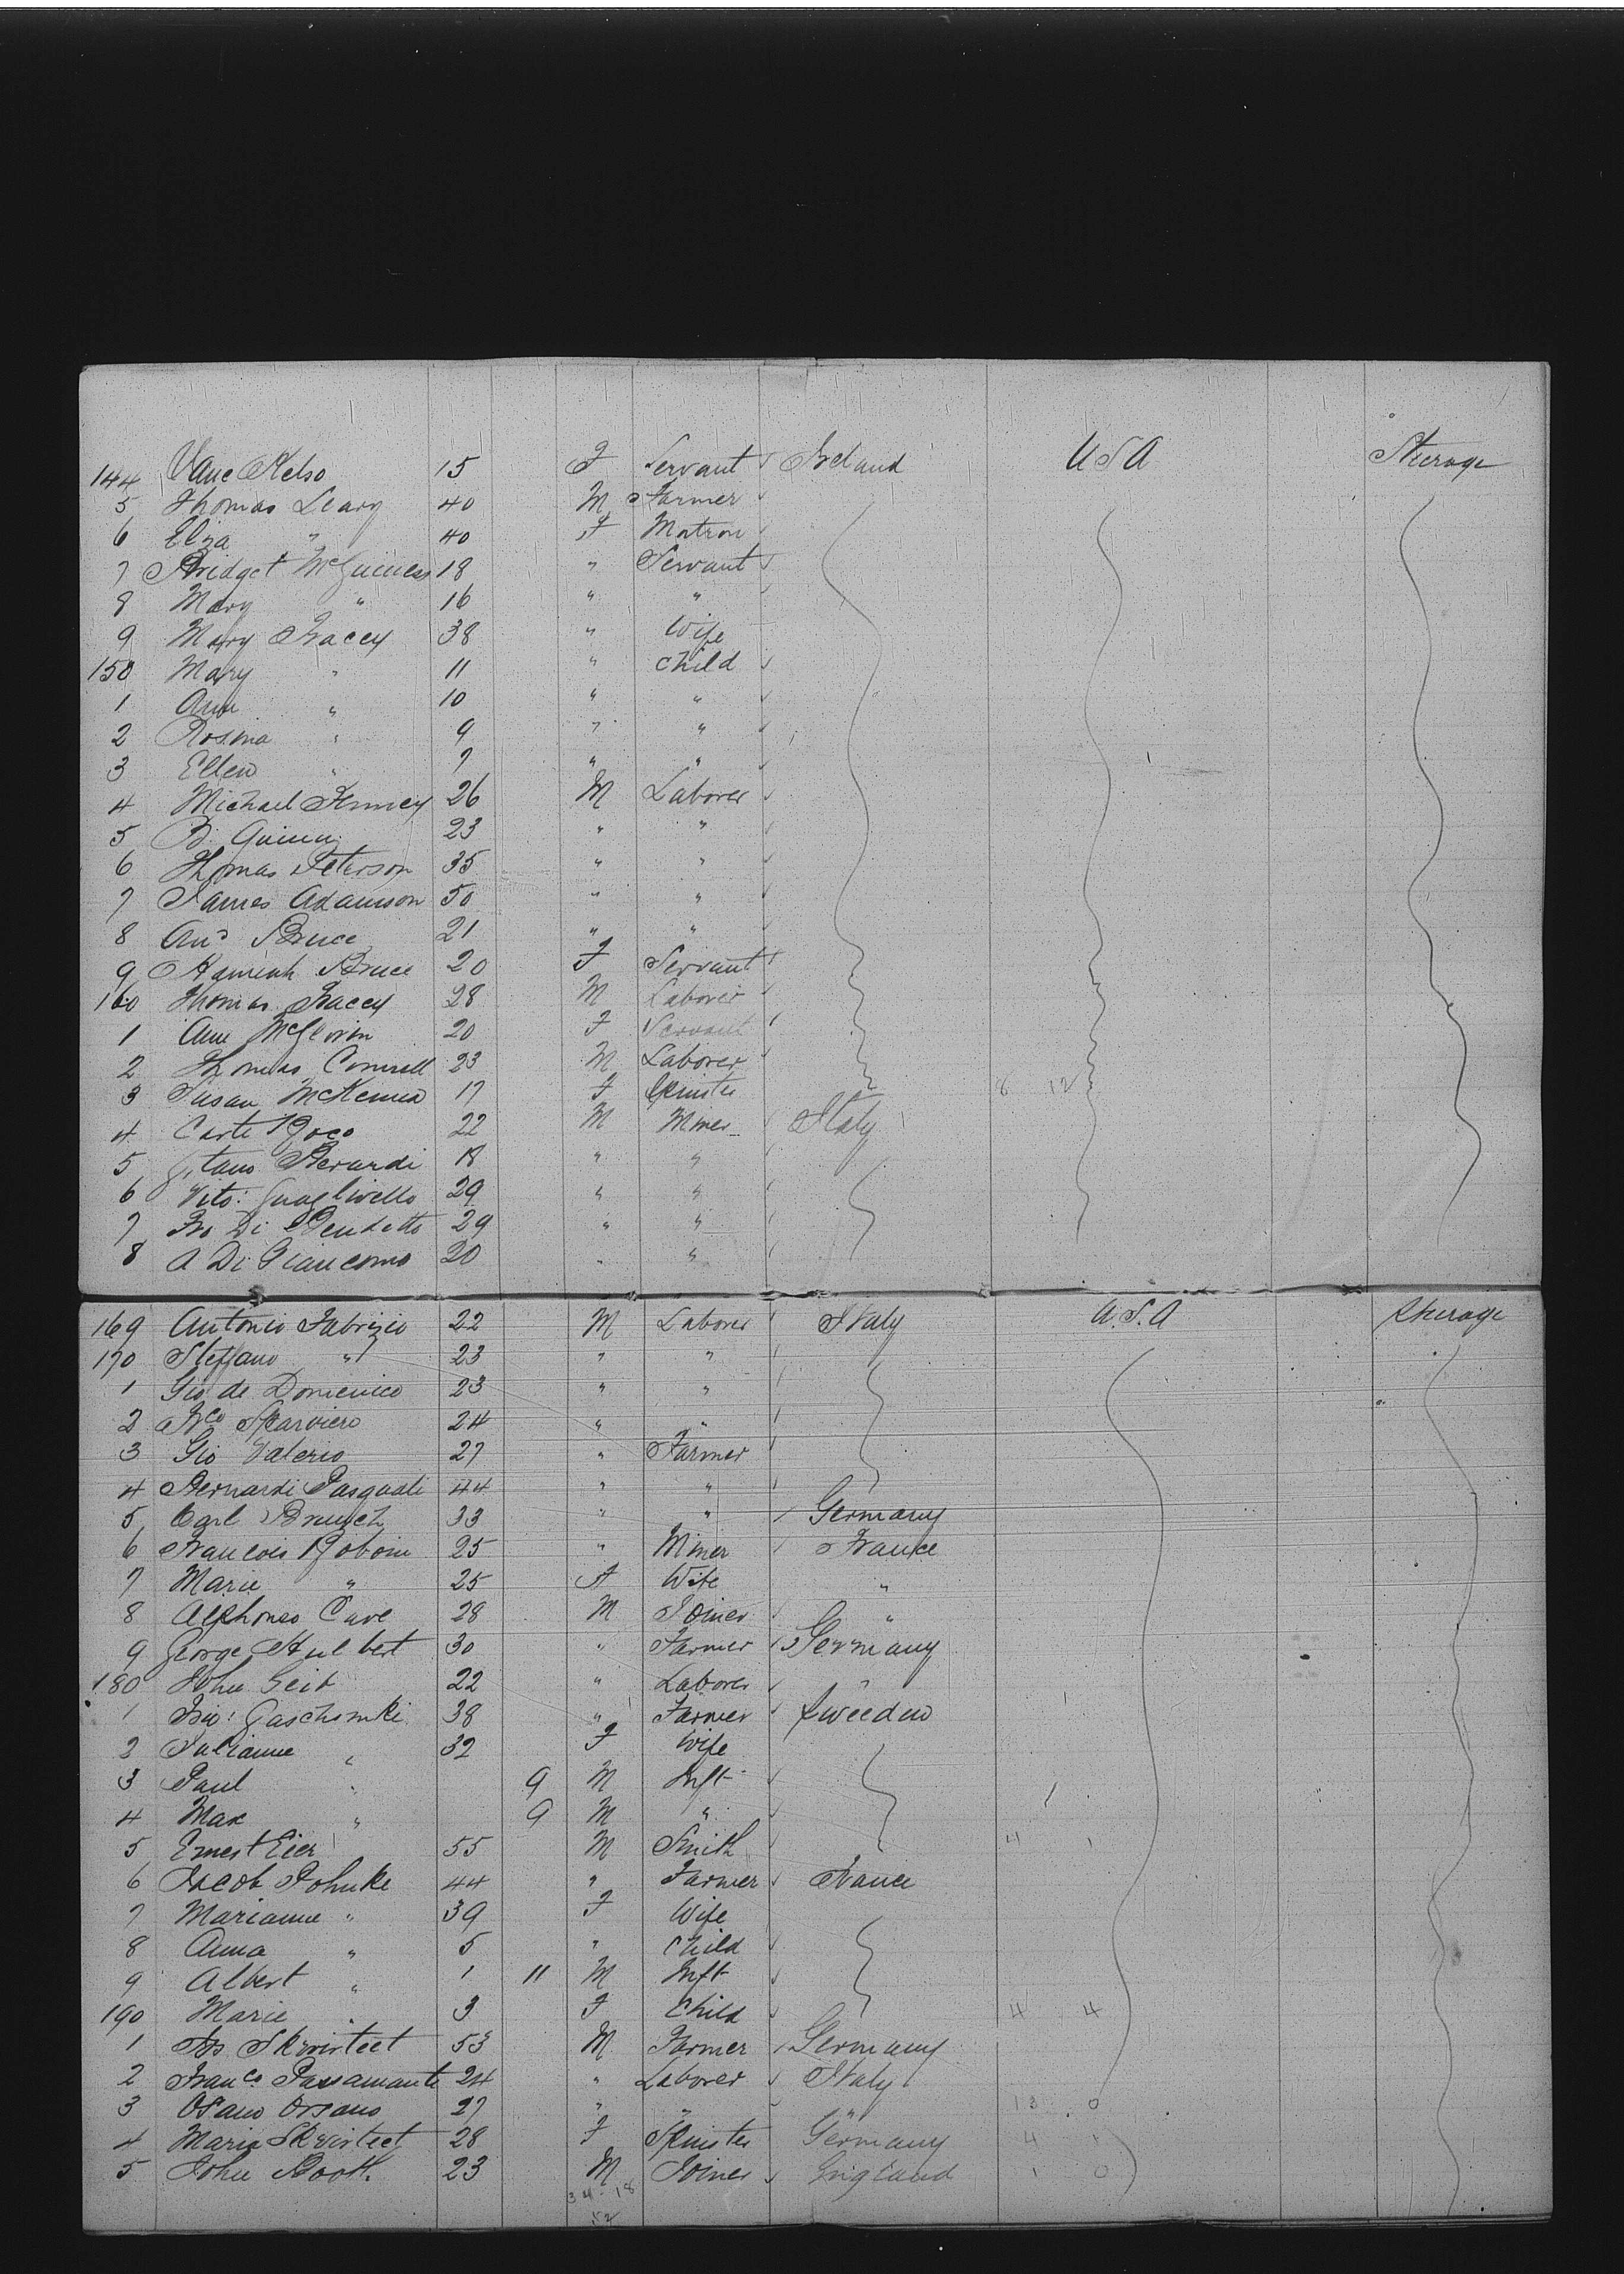 144 Jane Kelso 15 F Servant Ireland USA Steerage
5 Thomas Leary 40 M Farmer
6 Eliza " 40 F Matron
7 Bridget McGuiness 18 " Servant
8 Mary " 16 " "
9 Mary Tracey 38 " Wife
150 Mary " 11 " child
1 Ann " 10 " "
2 Rosina " 9 " "
3 Ellen " 7 " "
4 Michael 26 M Laborer
5 B. Quinn 23 " "
6 Thomas Peterson 35 " "
7 James Adamson 50 " "
8 And Bruce 21 " "
9 Bruce 20 F Servant
160 Thomas Tracey 28 M Laborer
1 Ann 20 F Servant
2 Thomas 23 M Laborer
3 Susan McKenna 17 F Spinster 8 12
4 22 M Miner Italy
5 Berardi 18 " "
6 Vito: 29 " "
7 Di 29 " "
8 A Di Giancomo 20 " "
169 Antonio Fabrizio 22 M Laborer Italy U.S.A Steerage
170 Steffano " 23 " "
1 Gio de Domenico 23 " "
2 Sparviero 24 " "
3 Gio Valerio 27 " Farmer
4 Bernardi Pasquali 44 " "
5 Carl 33 " " Germany
6 Francois 25 " Miner France
7 Marie " 25 F Wife "
8 Alphonso Cave 28 M Joiner "
9 George Hulbert 30 " Farmer Germany
180 John Geib 22 " Laborer "
1 38 " Farmer Sweeden
2 Julianne " 32 F Wife
3 Paul " 9 M Inft
4 Max " 9 M "
5 Ernest Eier 55 M Smith 4 1
6 Jacob Pohnke 44 " Farmer France
7 Marianne " 39 F Wife
8 Anna " 5 " Child
9 Albert " 1 11 M Inft
190 Marie " 3 F Child 4 4
1 53 M Farmer Germany
2 Franco Passamante 24 " Laborer Italy
3 Orsano 27 " " " 13 0
4 Maria 28 F Spinster Germany 4 1
5 John Booth 23 M Joiner England 1 0
34-18
52